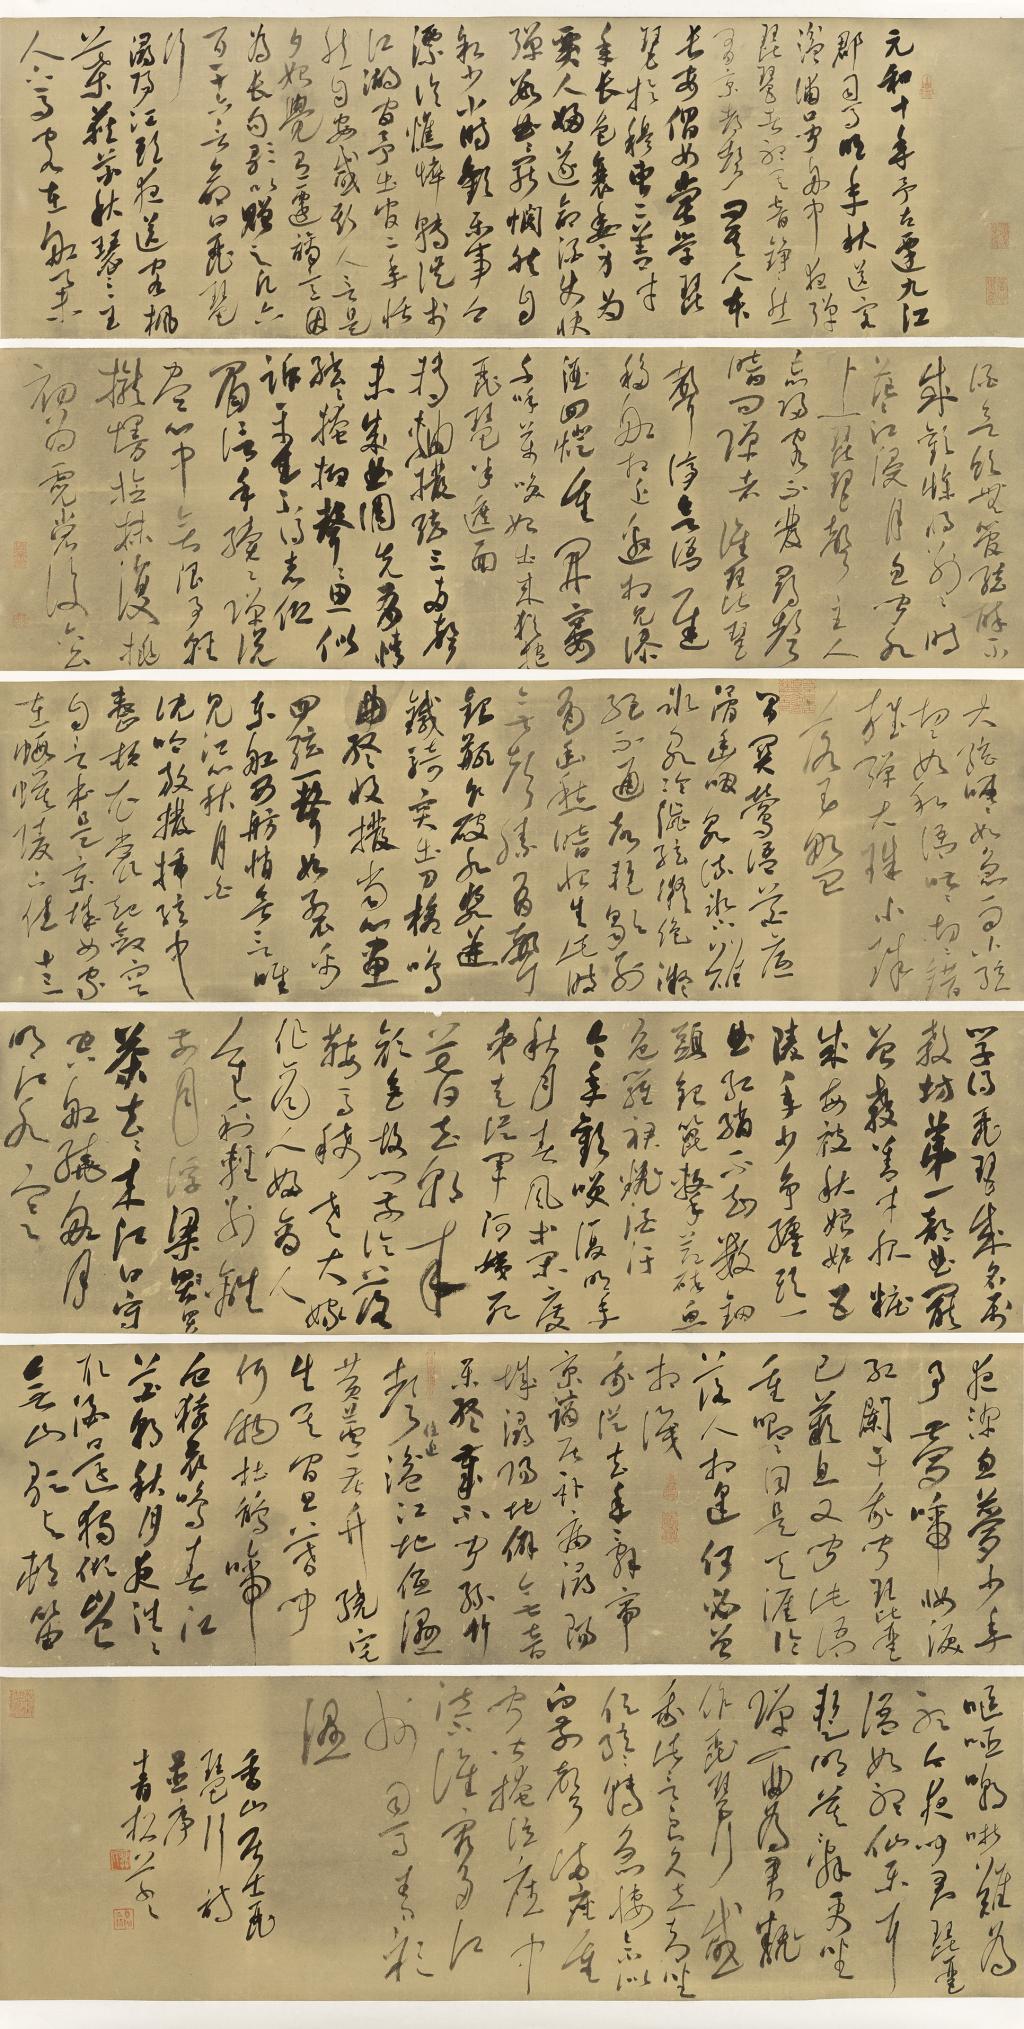 元和十年予左遷九江
郡司馬明年秋送客
湓浦口聞舟中夜彈
琵琶者聽其音錚錚然
有京都聲問其人本
長安倡女嘗學琵
琶於穆曹二善才
年長色衰委身為
賈人婦遂命酒使快
彈數曲曲罷憫然自
敘少小時歡樂事今
漂淪憔悴轉徙於
江湖間予出官二年恬
然自安感斯人言是
夕始覺有遷謫意因
為長句歌以贈之凡六
百一十六言命曰琵琶
行
潯陽江頭夜送客楓
葉荻花秋瑟瑟主
人下馬客在船舉
酒欲飲無管絃醉不
成歡慘將別別時
茫茫江浸月忽聞水
上琵琶聲主人
忘歸客不發尋聲
暗問彈者誰琵琶
聲停欲語遲
移船相近邀相見添
酒回燈重開宴
千呼萬喚始出來猶抱
琵琶半遮面
轉軸撥絃三兩聲
未成曲調先有情
絃絃掩抑聲聲思似
訴平生不得志低
眉信手續續彈說
盡心中無限事輕
攏慢撚抹復挑
初為霓裳後六么
大絃嘈嘈如急雨小絃
切切如私語嘈嘈切切錯
雜彈大珠小珠
落玉盤
間關鶯語花底
滑幽咽泉流冰下難
冰泉冷澀絃凝絕凝
絕不通聲暫歇別
有幽愁暗恨生此時
無聲勝有聲
銀瓶乍破水漿迸
鐵騎突出刀槍鳴
曲終收撥當心畫
四絃一聲如裂帛
東船西舫悄無言唯
見江心秋月白
沈吟放撥插絃中
整頓衣裳起斂容
自言本是京城女家
在蝦蟆陵下住十三
學得琵琶成名屬
教坊第一部曲罷
曾教善才服粧
成每被秋娘妒五
陵年少爭纏頭一
曲紅綃不知數鈿
頭銀篦擊節碎血
色羅裙翻酒汙
今年歡笑復明年
秋月春風等閒度
弟走從軍阿姨死
暮去朝來
顏色故門前冷落
鞍馬稀老大嫁
作商人婦商人
重利輕別離
前月浮梁買
茶去去來江口守
空船繞船月
明江水寒
夜深忽夢少年
事夢啼妝淚
紅闌干我聞琵琶
已嘆息又聞此語
重唧唧同是天涯淪
落人相逢何必曾
相識
我從去年辭帝
京謫居臥病潯陽
城潯陽地僻無音
樂終歲不聞絲竹
聲住近湓江地低濕
黃蘆苦竹繞宅
生其間旦暮聞
何物杜鵑啼
血猿哀鳴春江
花朝秋月夜往往
取酒還獨傾豈
無山歌與村笛
嘔啞嘲哳難為
聽今夜聞君琵琶
語如聽仙樂耳
暫明莫辭更坐
彈一曲為君翻
作琵琶行感
我此言良久立卻坐
促絃轉急悽悽不似
向前聲滿座重
聞皆掩泣座中
泣下誰最多江
州司馬青衫
濕
香山居士琵
琶行詩
並序
青松